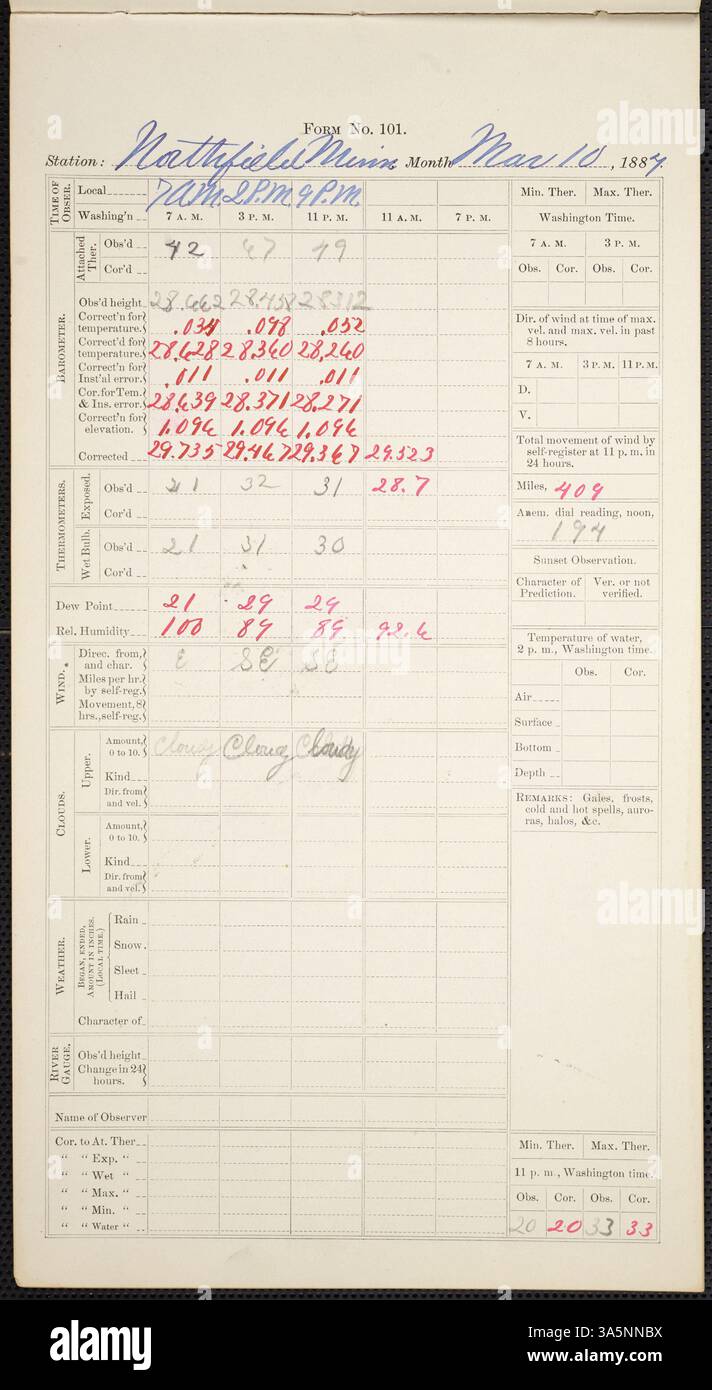 FORM No. 101.
Station: Northfield Minn Month Mar 10, 1887
TIME OF OBSER.
Local 7 A.M. 2 P.M. 9 P.M.
Washing'n 7 A. M. 3 P. M. 11 P. M. 11 A. M. 7 P. M.
Attached Ther.
Obs'd 42 47 49
Cor'd
BAROMETER.
Obs'd height 28.662 28.458 28312
Correct'n for temperature. .034 .098 .052
Correct'd for temperature. 28.628 28.360 28.260
Correct'n for Inst'al error. .011 .011 .011
Cor. for Tem. & Ins. error. 28.639 28.371 28.271
Correct'n for elevation. 1.096 1.096 1.096
Corrected 29.735 29.467 29.367 29.523
THERMOMETERS.
Exposed.
Obs'd 21 32 31 28.7
Cor'd
Wet Bulb.
Obs'd 21 31 30
Cor'd
Dew Point 21 29 29
Rel. Humidity 100 89 89 92.6
WIND.
Direc. from, and char. E SE SE
Miles per hr. by self-reg.
Movement, 8 hrs., self-reg.
CLOUDS.
Upper.
Amount, 0 to 10. Cloudy Cloudy Cloudy
Kind
Dir. from and vel.
Lower.
Amount, 0 to 10.
Kind
Dir. from and vel.
WEATHER.
BEGAN, ENDED, AMOUNT IN INCHES. (LOCAL TIME.)
Rain
Snow.
Sleet
Hail
Character of
RIVER GAUGE.
Obs'd height
Change in 24 hours.
Name of Observer
Cor. to At. Ther
" " Exp. "
" " Wet "
" " Max. "
" " Min. "
" " Water "
Min. Ther. Max. Ther.
Washington Time.
7 A. M. 3 P. M.
Obs. Cor. Obs. Cor.
Dir. of wind at time of max. vel. and max. vel. in past 8 hours.
7 A. M. 3 P. M. 11 P. M.
D.
V.
Total movement of wind by self-register at 11 p. m. in 24 hours.
Miles, 409
Anem. dial reading, noon,
194
Sunset Observation.
Character of Prediction. Ver. or not verified.
Temperature of water, 2 p. m., Washington time.
Obs. Cor.
Air
Surface
Bottom
Depth
REMARKS: Gales, frosts, cold and hot spells, auroras, halos, &c.
Min. Ther. Max. Ther.
11 p. m., Washington time.
Obs. Cor. Obs. Cor.
20 20 33 33
alamy
alamy
alamy
alamy
alamy
alamy
Image ID: 3A5NNBX
www.alamy.com